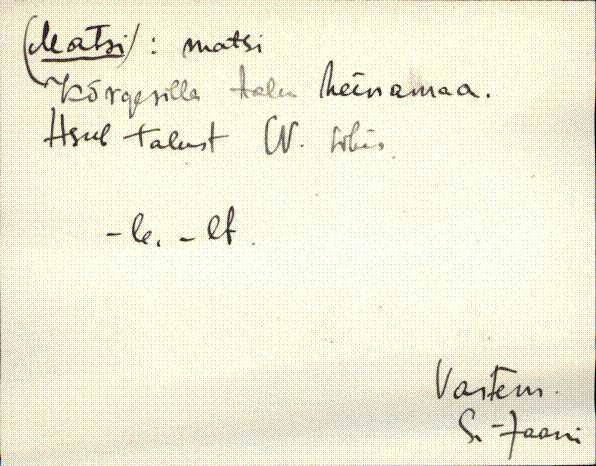 (Matsi): matsi
Kõrgesilla talu heinamaa.
Asub talust W.
-le. -lt.
Vastem.
S.-Jaani